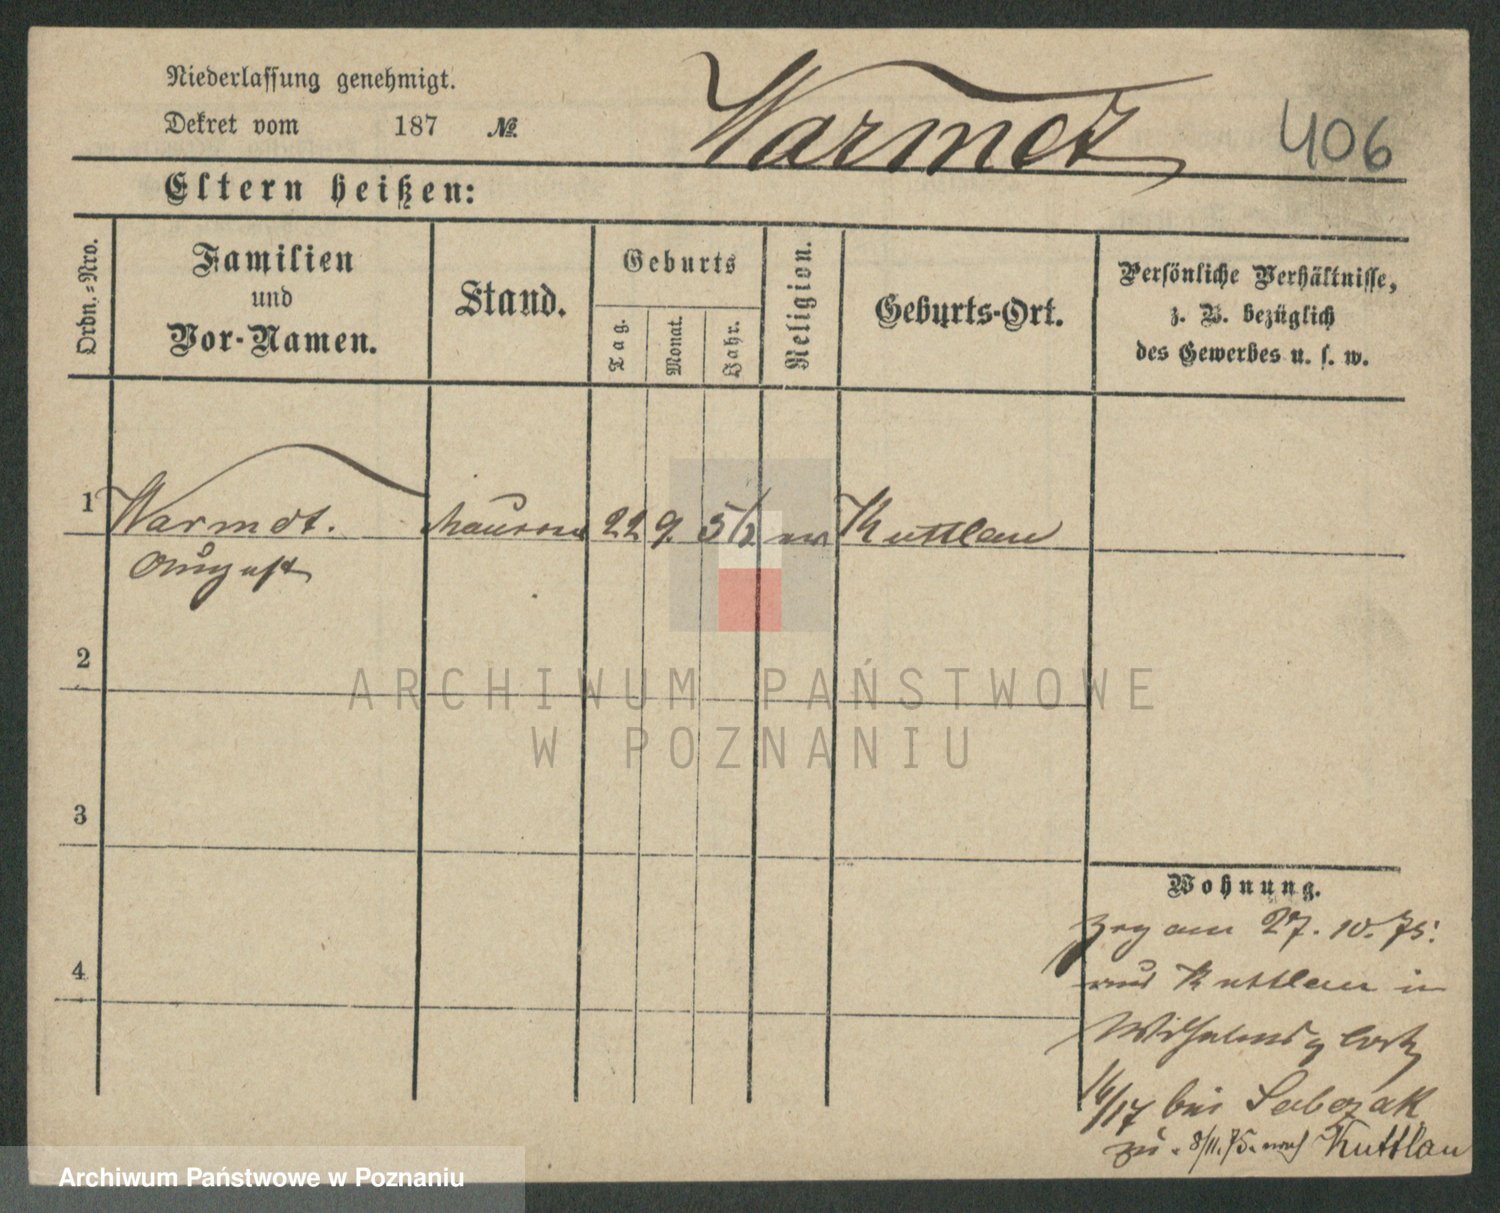 Niederlassung genehmigt.
Dekret vom 187 №
Warmdt
406
Eltern heißen:
Ordn.=Nro.
Familien
und
Vor-Namen.
Stand.
Geburts
Tag.
Monat.
Jahr.
Religion.
Geburts-Ort.
Persönliche Verhältnisse,
z. B. bezüglich
des Gewerbes u. s. w.
1 Warmdt. 22 9 51/2 ev Kuttlau
August
2
3
4
Wohnung.
Zog am 27. 10. 75.
aus Kuttlau in
Wilhelmsplatz
16/17 bei
zu. 8/11. 75. nach Kuttlau
ARCHIWUM PAŃSTWOWE
W POZNANIU
Archiwum Państwowe w Poznaniu